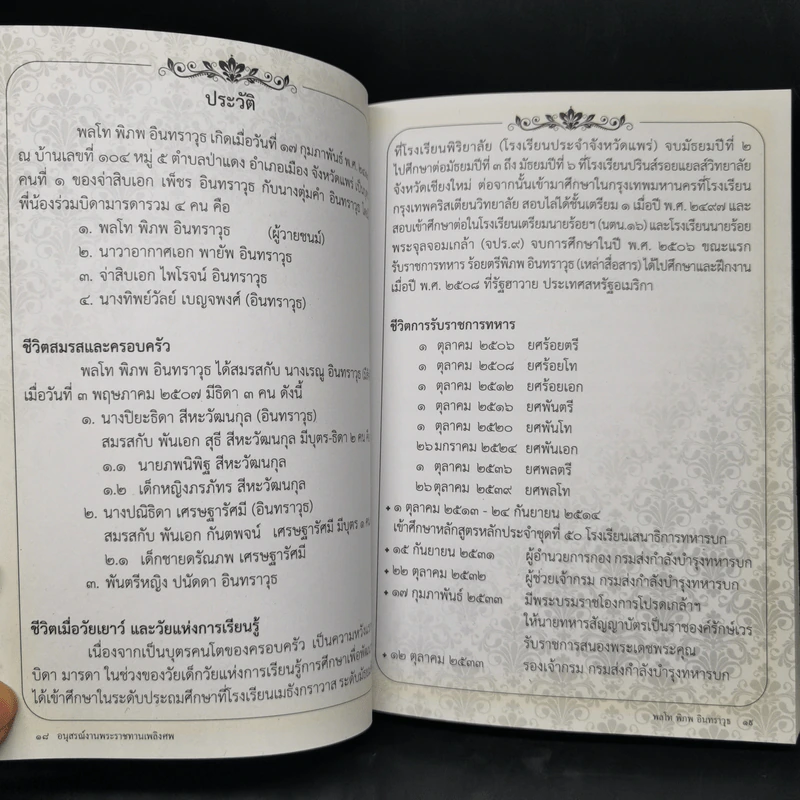 ประวัติ
พลโท พิภพ อินทราวุธ เกิดเมื่อวันที่ ๑๗ กุมภาพันธ์ พ.ศ.
ณ บ้านเลขที่ ๑๐๔ หมู่ ๕ ตำบลป่าแดง อำเภอเมือง จังหวัดแพร่
คนที่ ๑ ของจ่าสิบเอก เพ็ชร อินทราวุธ กับนางตุ่มคำ อินทราวุธ
พี่น้องร่วมบิดามารดารวม ๔ คน คือ
๑. พลโท พิภพ อินทราวุธ (ผู้วายชนม์)
๒. นาวาอากาศเอก พายัพ อินทราวุธ
๓. จ่าสิบเอก ไพโรจน์ อินทราวุธ
๔. นางทิพย์วัลย์ เบญจพงศ์ (อินทราวุธ)
ชีวิตสมรสและครอบครัว
พลโท พิภพ อินทราวุธ ได้สมรสกับ นางเรณู อินทราวุธ
เมื่อวันที่ ๓ พฤษภาคม ๒๕๐๗ มีธิดา ๓ คน ดังนี้
๑. นางปิยะธิดา สีหะวัฒนกุล (อินทราวุธ)
สมรสกับ พันเอก สุธี สีหะวัฒนกุล มีบุตร-ธิดา ๒ คน
๑.๑ นายภพนิพิฐ สีหะวัฒนกุล
๑.๒ เด็กหญิงภรภัทร สีหะวัฒนกุล
๒. นางปณิธิดา เศรษฐารัศมี (อินทราวุธ)
สมรสกับ พันเอก กันตพจน์ เศรษฐารัศมี มีบุตร ๑
๒.๑ เด็กชายดรัณภพ เศรษฐารัศมี
๓. พันตรีหญิง ปนัดดา อินทราวุธ
ชีวิตเมื่อวัยเยาว์ และวัยแห่งการเรียนรู้
เนื่องจากเป็นบุตรคนโตของครอบครัว เป็นความหวัง
บิดา มารดา ในช่วงของวัยเด็กวัยแห่งการเรียนรู้การศึกษาเพื่อพัฒนา
ได้เข้าศึกษาในระดับประถมศึกษาที่โรงเรียนเมธังกราวาส ระดับ
๑๘ อนุสรณ์งานพระราชทานเพลิงศพ
ที่โรงเรียนพิริยาลัย (โรงเรียนประจำจังหวัดแพร่) จบมัธยมปีที่ ๒
ไปศึกษาต่อมัธยมปีที่ ๓ ถึง มัธยมปีที่ ๖ ที่โรงเรียนปรินส์รอยแยลส์วิทยาลัย
จังหวัดเชียงใหม่ ต่อจากนั้นเข้ามาศึกษาในกรุงเทพมหานครที่โรงเรียน
กรุงเทพคริสเตียนวิทยาลัย สอบไล่ได้ชั้นเตรียม ๑ เมื่อปี พ.ศ. ๒๔๙๗ และ
สอบเข้าศึกษาต่อในโรงเรียนเตรียมนายร้อยฯ (นตน.๑๖) และโรงเรียนนายร้อย
พระจุลจอมเกล้า (จปร.๙) จบการศึกษาในปี พ.ศ. ๒๕๐๖ ขณะแรก
รับราชการทหาร ร้อยตรีพิภพ อินทราวุธ (เหล่าสื่อสาร) ได้ไปศึกษาและฝึกงาน
เมื่อปี พ.ศ. ๒๕๐๘ ที่รัฐฮาวาย ประเทศสหรัฐอเมริกา
ชีวิตการรับราชการทหาร
๑ ตุลาคม ๒๕๐๖ ยศร้อยตรี
๑ ตุลาคม ๒๕๐๘ ยศร้อยโท
๑ ตุลาคม ๒๕๑๒ ยศร้อยเอก
๑ ตุลาคม ๒๕๑๖ ยศพันตรี
๑ ตุลาคม ๒๕๒๐ ยศพันโท
๒๖ มกราคม ๒๕๒๔ ยศพันเอก
๑ ตุลาคม ๒๕๓๖ ยศพลตรี
๒๖ ตุลาคม ๒๕๓๙ ยศพลโท
✦ ๑ ตุลาคม ๒๕๑๓ - ๒๔ กันยายน ๒๕๑๔
เข้าศึกษาหลักสูตรหลักประจำชุดที่ ๕๐ โรงเรียนเสนาธิการทหารบก
✦ ๑๕ กันยายน ๒๕๓๑ ผู้อำนวยการกอง กรมส่งกำลังบำรุงทหารบก
✦ ๒๒ ตุลาคม ๒๕๓๒ ผู้ช่วยเจ้ากรม กรมส่งกำลังบำรุงทหารบก
✦ ๑๗ กุมภาพันธ์ ๒๕๓๓ มีพระบรมราชโองการโปรดเกล้าฯ
ให้นายทหารสัญญาบัตรเป็นราชองค์รักษ์เวร
รับราชการสนองพระเดชพระคุณ
✦ ๑๒ ตุลาคม ๒๕๓๓ รองเจ้ากรม กรมส่งกำลังบำรุงทหารบก
พลโท พิภพ อินทราวุธ ๑๙